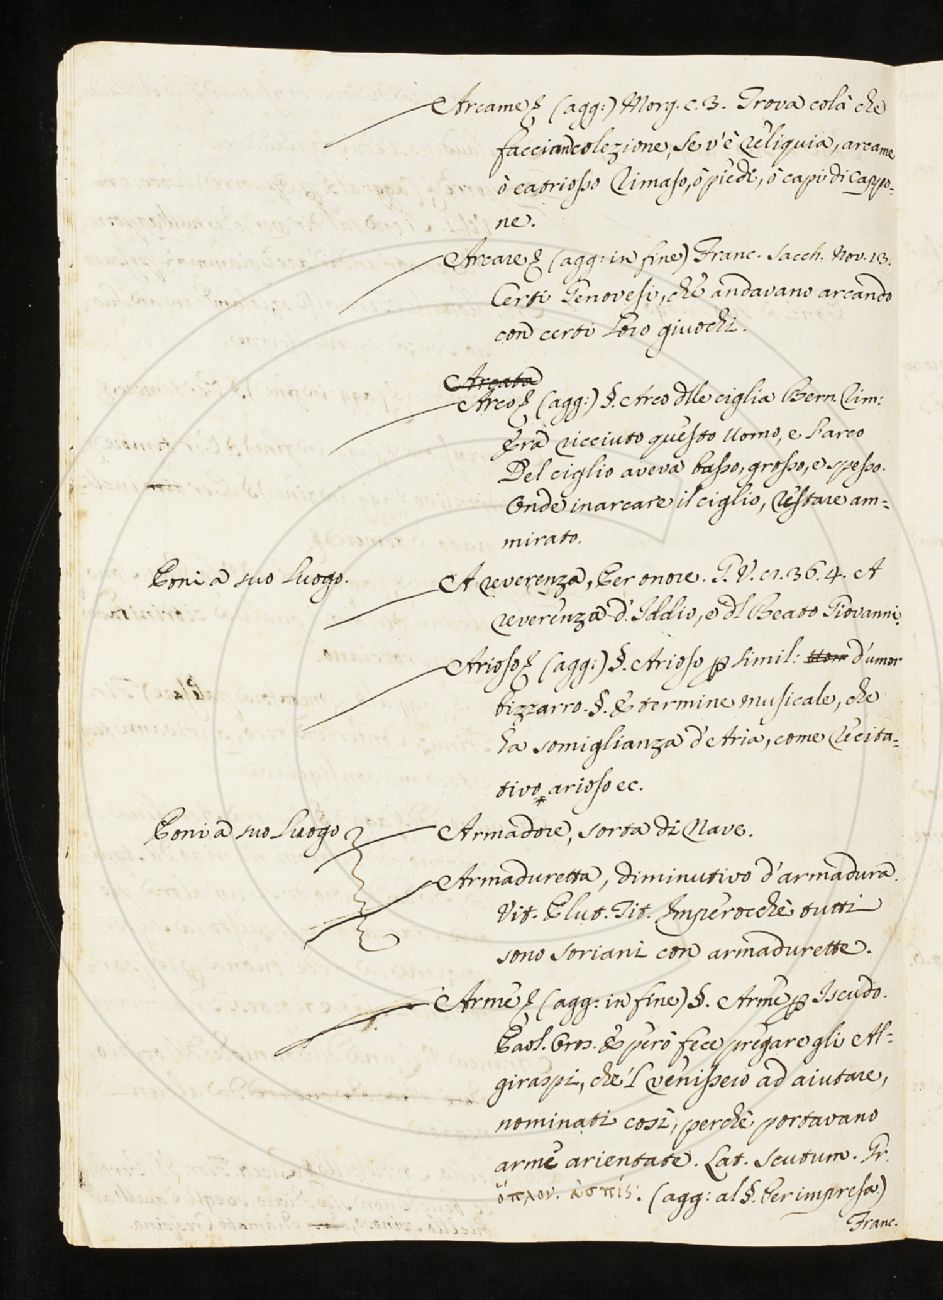 Arcame] (agg:) Morg. c. 3. Trova colà che
facciancolezione, Se v'è reliquia, arcame
ò catriosso Rimaso, ò piedi, ò capi di Cappo-
ne.
Arcare] (agg: in fine) Franc. Sacch. Nov. 13.
Certi Genovesi, che andavano arcando
con certi Loro giuochi.
Arcata
Arco] (agg:) §. Arco dlle ciglia Bern. Rim:
Era ricciuto questo Uomo, e l'arco
Del ciglio aveva basso, grosso, e spesso.
Onde inarcare il ciglio, restare am-
mirato.
Poni a suo Luogo.
A reverenza, Per onore. G. V. 36. 4. A
reverenza d'Iddio, e dl Beato Giovanni.
Arioso] (agg:) §. Arioso p simil: Uom d'umor
bizzarro. §. È termine musicale, che
ha somiglianza d'Aria, come recita-
tivo arioso ec.
Poni a suo Luogo
Armadore, sorta di Nave.
Armaduretta, diminutivo d'armadura.
Vit. Plut. Tit. Imperocchè tutti
sono soriani con armadurette.
Arme] (agg: in fine) §. Arme p Iscudo.
Paol. Oros. E però fece pregare gli Al-
giraspi, che 'l venissero ad aiutare,
nominati così, perchè portavano
arme arientate. Lat. Scutum. Gr.
ὅπλον. ἀσπίς. (agg: al §. Per impresa)
Franc.